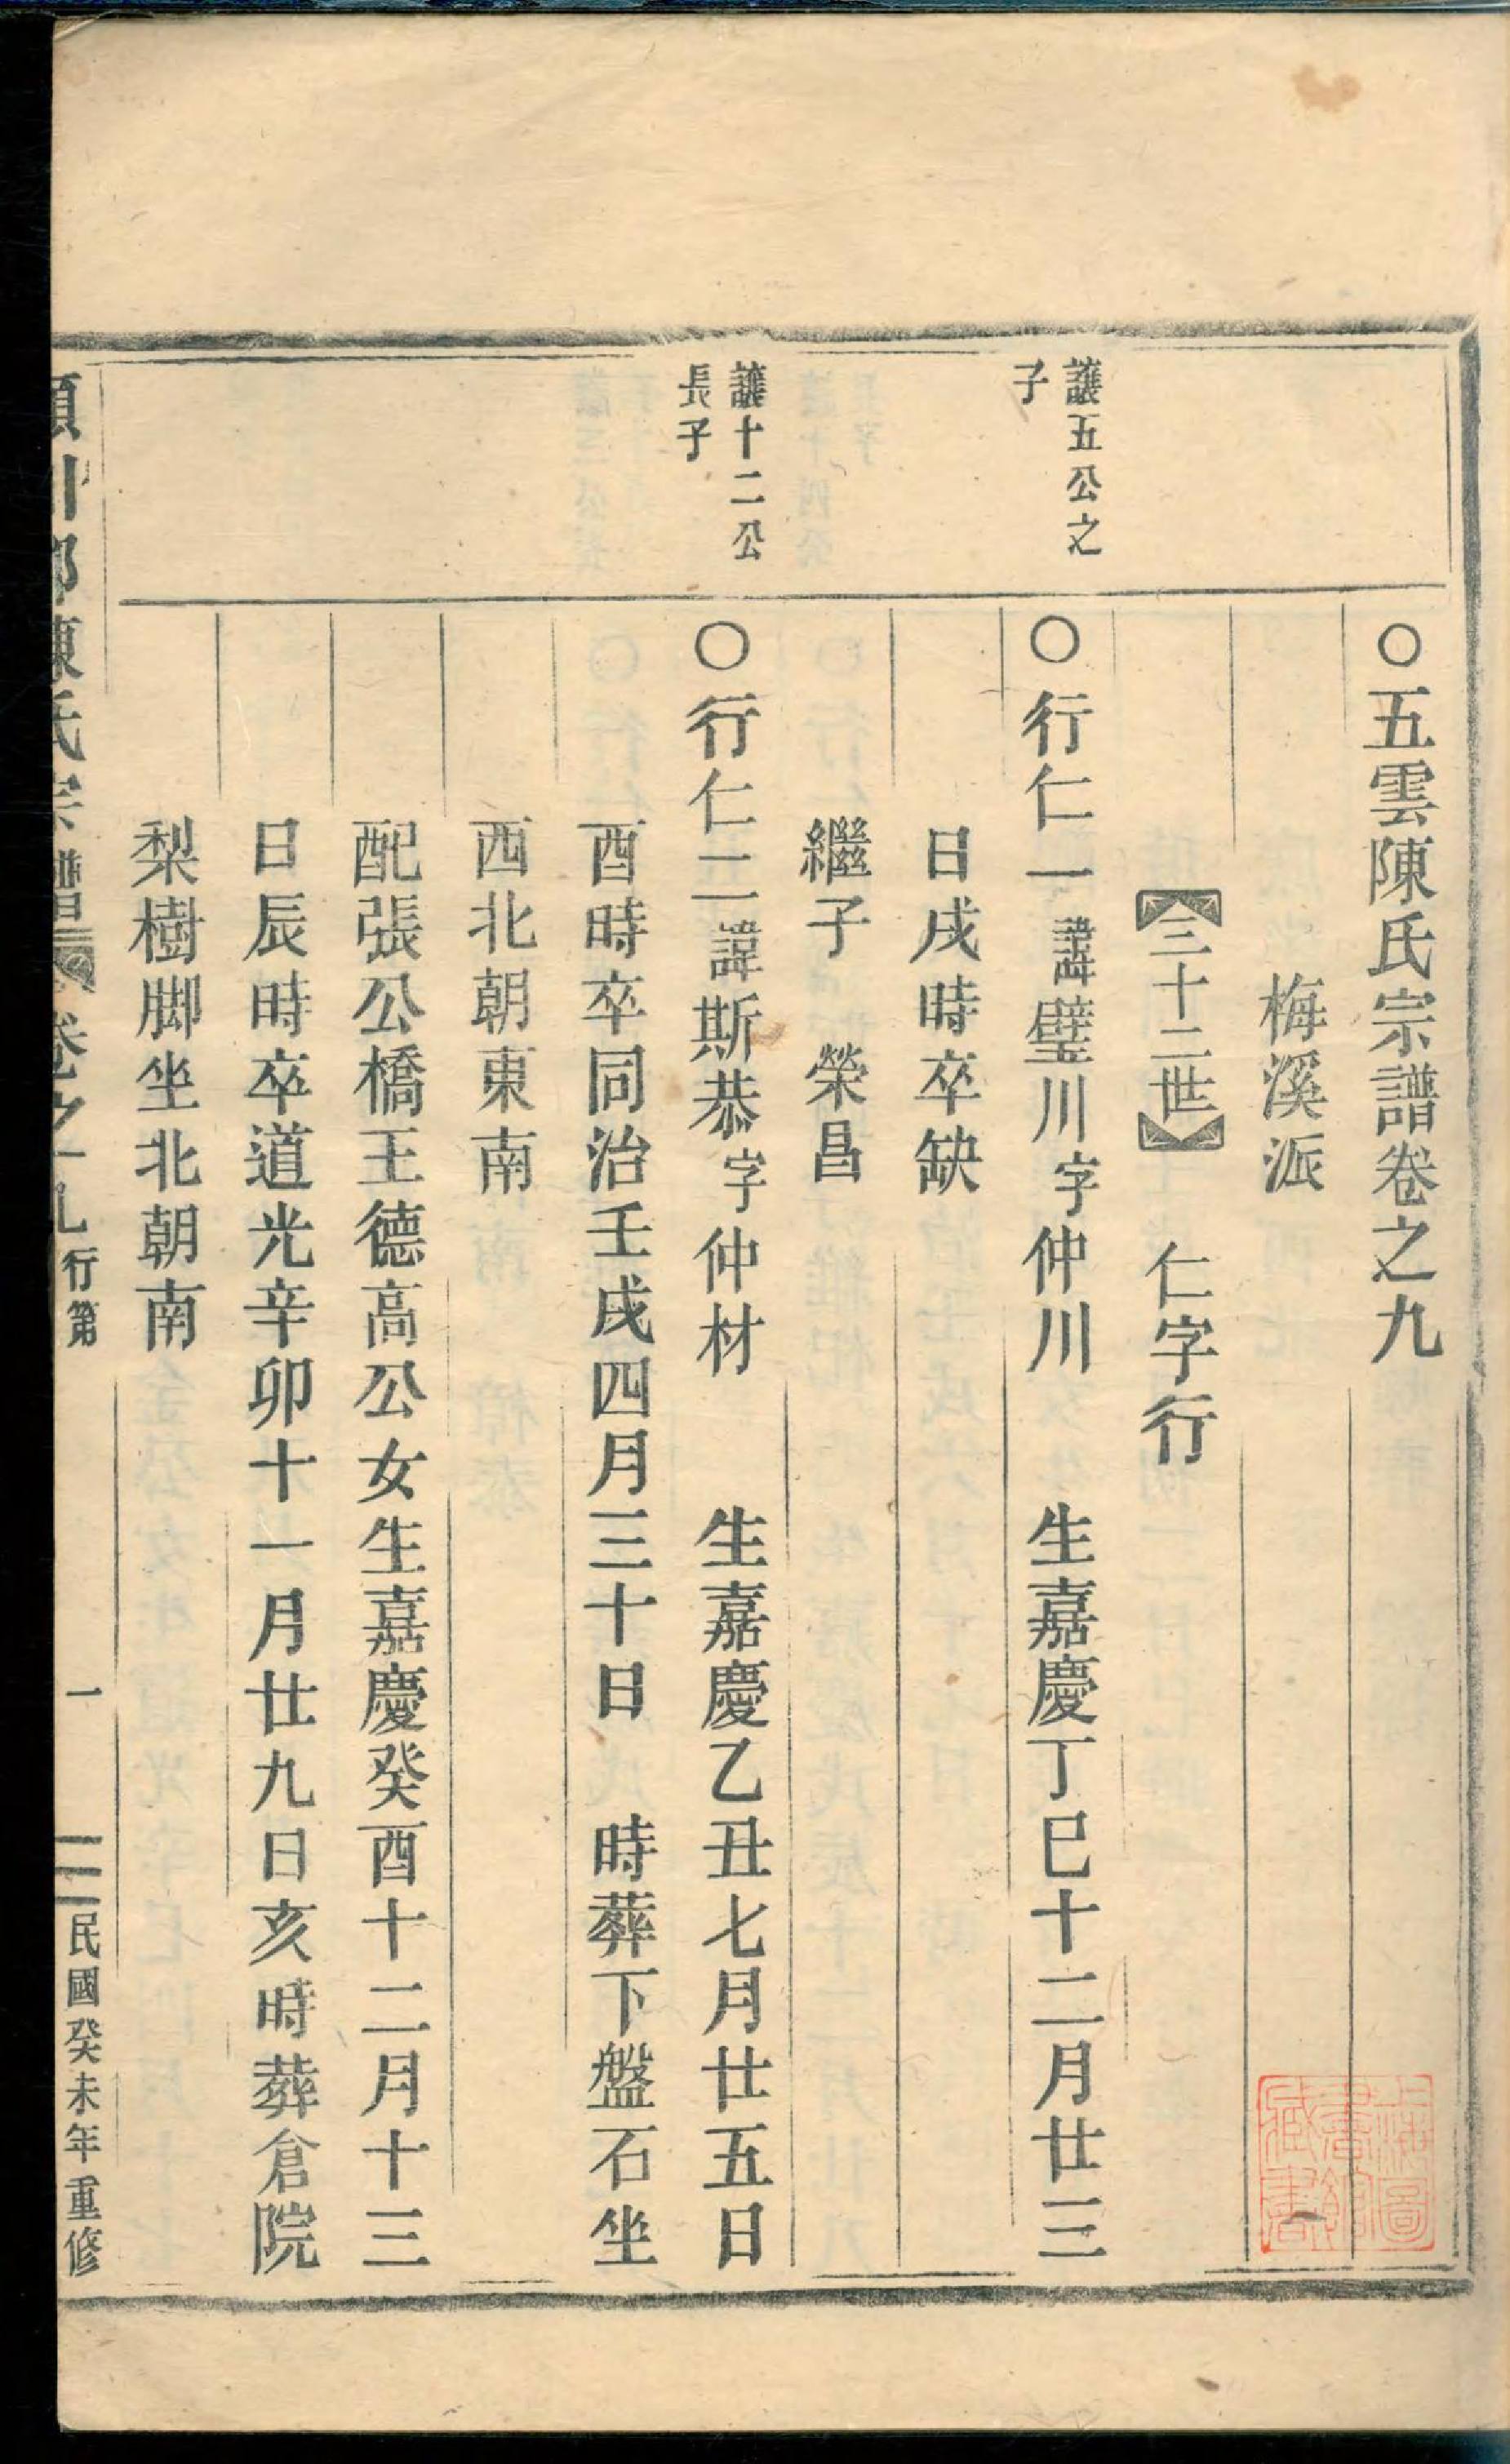 ○五雲陳氏宗譜卷之九
梅溪派
【三十二世】 仁字行
讓五公之
子
○行仁一 諱璧川 字仲川 生嘉慶丁巳十二月廿三
日戌時卒缺
繼子 榮昌
讓十二公
長子
○行仁二 諱斯恭 字仲材 生嘉慶乙丑七月廿五日
酉時卒同治壬戌四月三十日 時葬下盤石坐
西北朝東南
配張公橋王德高公女生嘉慶癸酉十二月十三
日辰時卒道光辛卯十一月廿九日亥時葬倉院
梨樹脚坐北朝南
川郡陳氏宗譜 卷之九 行第 一 民國癸未年重修
圖書館藏書